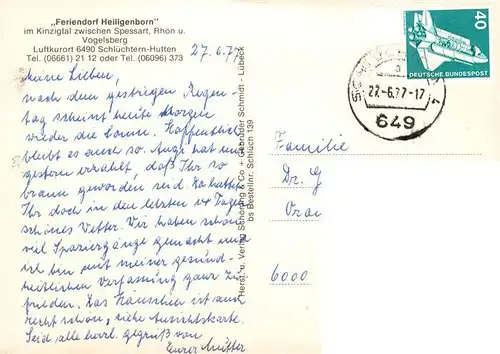 „Feriendorf Heiligenborn"
im Kinzigtal zwischen Spessart, Rhön u.
Vogelsberg
Luftkurort 6490 Schlüchtern-Hutten
Tel. (06661) 21 12 oder Tel. (06096) 373
27.6.77
Meine Lieben,
nach dem gestrigen Regen-
tag scheint heute Morgen
wieder die Sonne. Hoffentlich
bleibt es auch so. Angi hat uns
gestern erzählt, daß Ihr so
braun geworden seid. Da hattet
Ihr doch in den letzten 14 Tagen
schönes Wetter. Wir haben schon
viel Spaziergänge gemacht und
ich bin mit meiner gesund-
heitlichen Verfassung ganz zu-
frieden. Das Häuschen ist auch
recht schön, siehe Ansichtskarte.
Seid alle herzl. gegrüßt von
Eurer Mutter
Herst. u. Verlag Schöning & Co + Gebrüder Schmidt - Lübeck
bs Bestellnr. Schlüch 139
40
DEUTSCHE BUNDESPOST
a
27.-6.77-17
649
Familie
Dr. G
6000